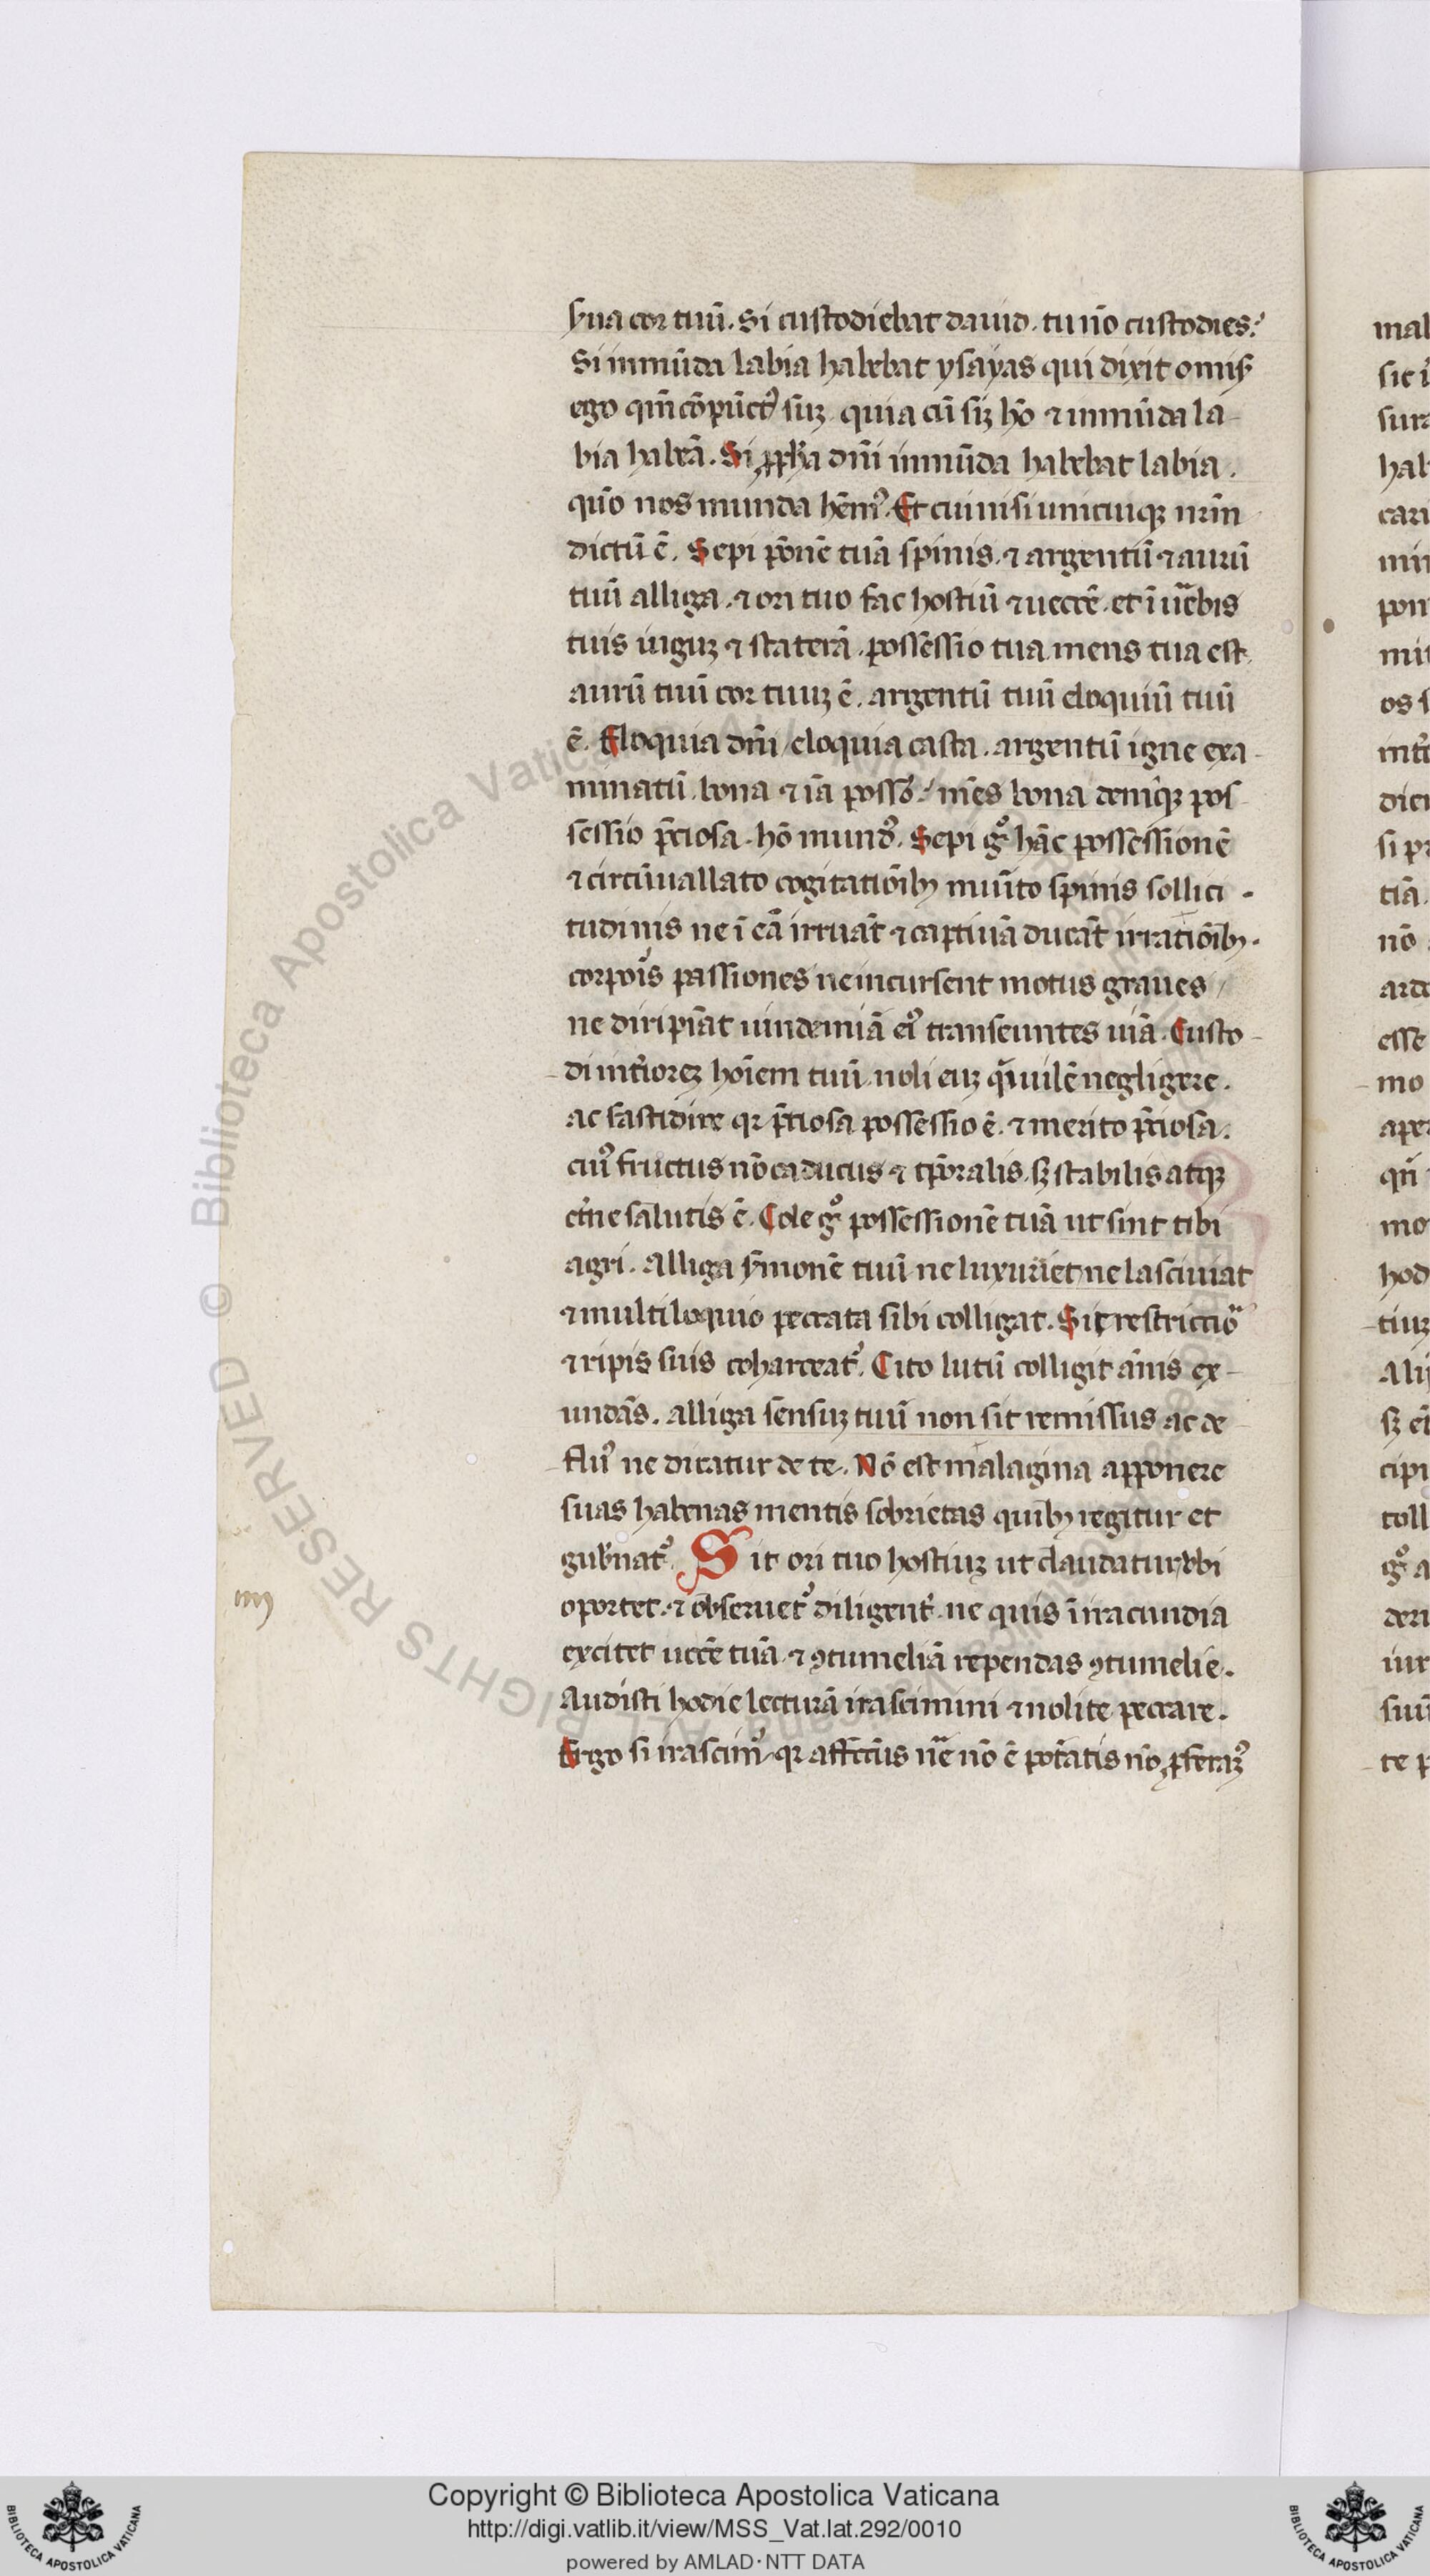 sua cor tuū. Si custodiebat dauid. tu nō custodies?
Si inmūda labia habebat ysayas qui dixit o mis
ego qm̄ cōpūct᷒ suꝫ quia cū siꝫ hō ⁊ inmūda la-
bia habeā. Si ꝓph̄a dn̄i inmūda habebat labia.
quō nos munda hēm᷒. Et cui nisi unicuiqꝫ nrm̄
dictū ē. Sepi possessionē tuā spinis. ⁊ argentū ⁊ aurū
tuū alliga. ⁊ ori tuo fac hostiū ⁊ uectē. et ī uerbis
tuis iuguꝫ ⁊ staterā. possessio tua mens tua est.
aurū tuū cor tuuꝫ ē. argentū tuū eloquiū tuū
ē. Eloquia dn̄i eloquia casta. argentū igne exa-
minatū. bona ⁊ iā possō. mēs bona deniqꝫ pos
sessio p̄ciosa. hō mund᷒. Sepi gͦ hāc possessionē
⁊ circūuallato cogitatiōibꝫ muīto spinis sollici-
tudinis ne ī eā irruāt ⁊ captiuā ducāt irratiōībꝫ.
corpoīs passiones ne incursent motus graues
ne diripiāt uindemiā ei᷒ transeuntes uiā. Custo-
di int̄ioreꝫ hoīem tuū. noli euꝫ qͣi uilē negligere.
ac fastidire qꝛ p̄ciosa possessio ē. ⁊ merito p̄ciosa.
cui᷒ fructus nō caducus ⁊ tp̄oralis. sꝫ stabilis atqꝫ
et̄ne salutis ē. Cole gͦ possessionē tuā ut sint tibi
agri. Alliga s̄monē tuū ne luxuriet ne lasciuiat
⁊ multiloquio peccata sibi colligat. Sit restrictioͬ
⁊ ripis suis coharceat᷒. Cito lutū colligit āmis ex-
undās. alliga sensuꝫ tuū non sit remissus ac de
flu᷒ ne dicatur de te. Nō est malagma apponere
suas habenas mentis sobrietas quibꝫ regitur et
gub̄nat᷒. Sit ori tuo hostiuꝫ ut claudatur ubi
oportet. ⁊ obseruet᷒ diligent̄. ne quis īiracundia
excitet uocē tuā ⁊ ꝯtumeliā rependas ꝯtumelie.
Audisti hodie lecturā irascimini ⁊ nolite peccare.
Ergo si irascim᷒ qꝛ affectus nr̄e nō ē potātis nō ꝓferaꝫ᷒
mal
sura
hal
cari
pon
os s
dici
tiā.
nō
esse
mo
hod
tiuꝫ
cipi
toll
te p
© Biblioteca Apostolica Vaticana
ALL RIGHTS RESERVED
Copyright © Biblioteca Apostolica Vaticana
http://digi.vatlib.it/view/MSS_Vat.lat.292/0010
powered by AMLAD·NTT DATA
BIBLIOTECA APOSTOLICA VATICANA
BIBLIOTECA APOSTOLICA VATICANA